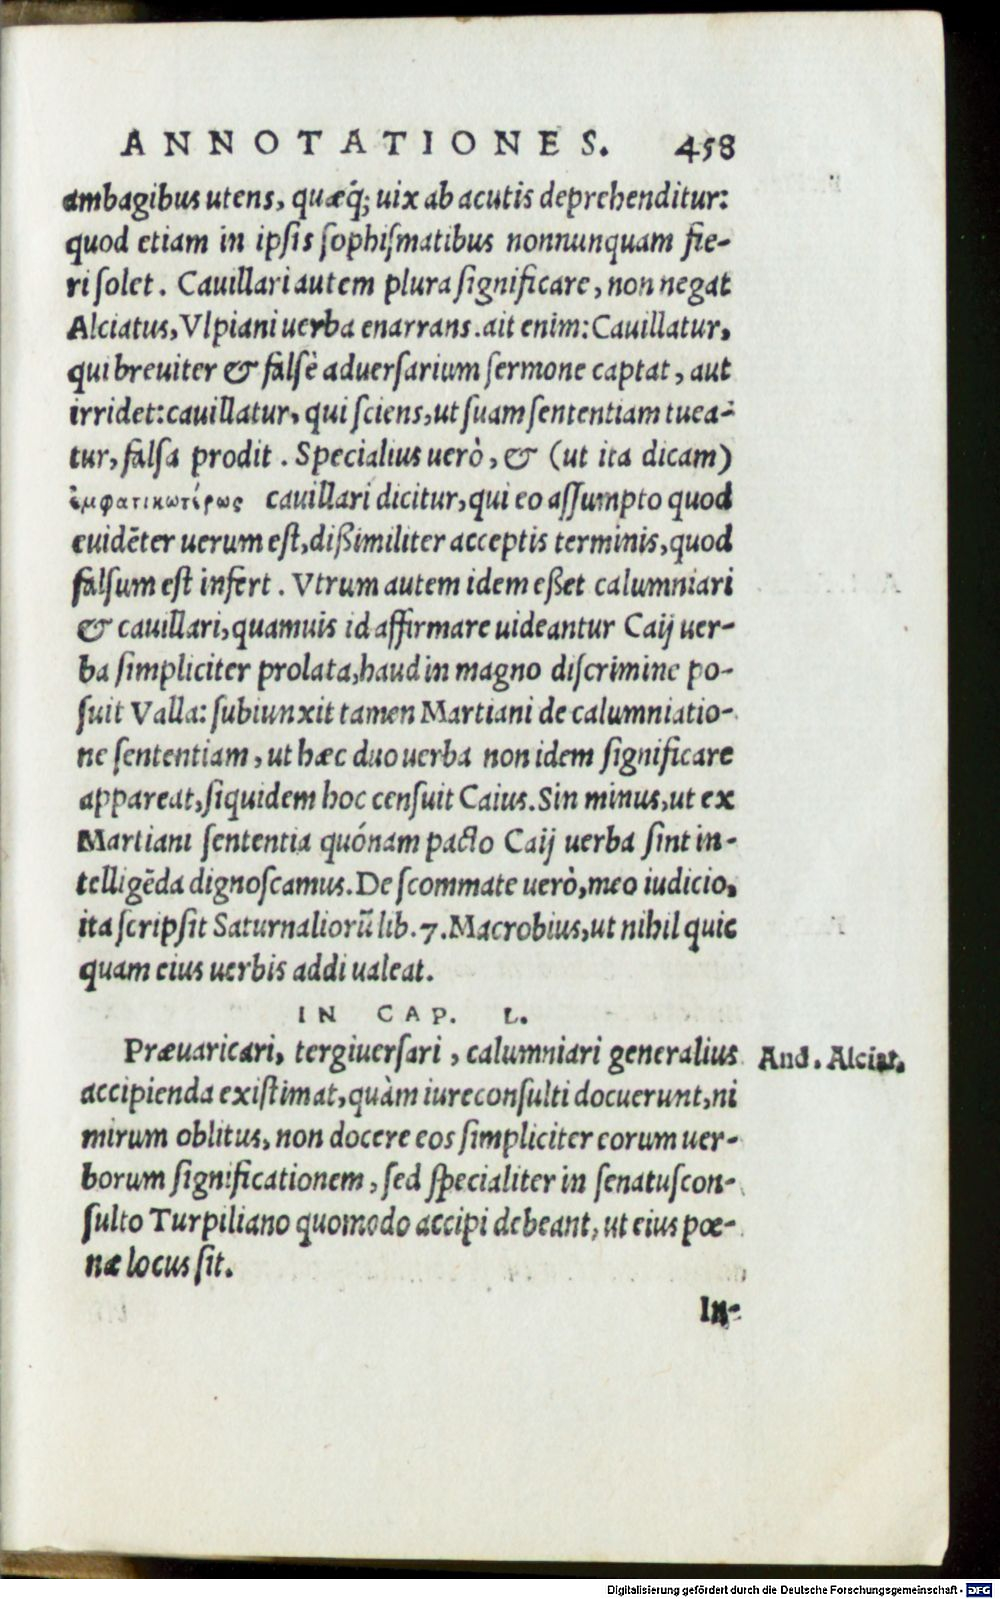 ANNOTATIONES. 458
ambagibus utens, quæq́; uix ab acutis deprehenditur:
quod etiam in ipsis sophismatibus nonnunquam fie-
ri solet. Cauillari autem plura significare, non negat
Alciatus, Vlpiani uerba enarrans. ait enim: Cauillatur,
qui breuiter & falsè aduersarium sermone captat, aut
irridet: cauillatur, qui sciens, ut suam sententiam tuea-
tur, falsa prodit. Specialius uerò, & (ut ita dicam)
ἐμφατικωτέρως cauillari dicitur, qui eo assumpto quod
euidẽter uerum est, dißimiliter acceptis terminis, quod
falsum est infert. Vtrum autem idem eßet calumniari
& cauillari, quamuis id affirmare uideantur Caij uer-
ba simpliciter prolata, haud in magno discrimine po-
suit Valla: subiunxit tamen Martiani de calumniatio-
ne sententiam, ut hæc duo uerba non idem significare
appareat, siquidem hoc censuit Caius. Sin minus, ut ex
Martiani sententia quónam pacto Caij uerba sint in-
telligẽda dignoscamus. De scommate uerò, meo iudicio,
ita scripsit Saturnaliorũ lib. 7. Macrobius, ut nihil quic
quam eius uerbis addi ualeat.
IN CAP. L.
Præuaricari, tergiuersari, calumniari generalius
And. Alciat.
accipienda existimat, quàm iureconsulti docuerunt, ni
mirum oblitus, non docere eos simpliciter eorum uer-
borum significationem, sed specialiter in senatuscon-
sulto Turpiliano quomodo accipi debeant, ut eius pœ-
næ locus sit.
In-
Digitalisierung gefördert durch die Deutsche Forschungsgemeinschaft - DFG